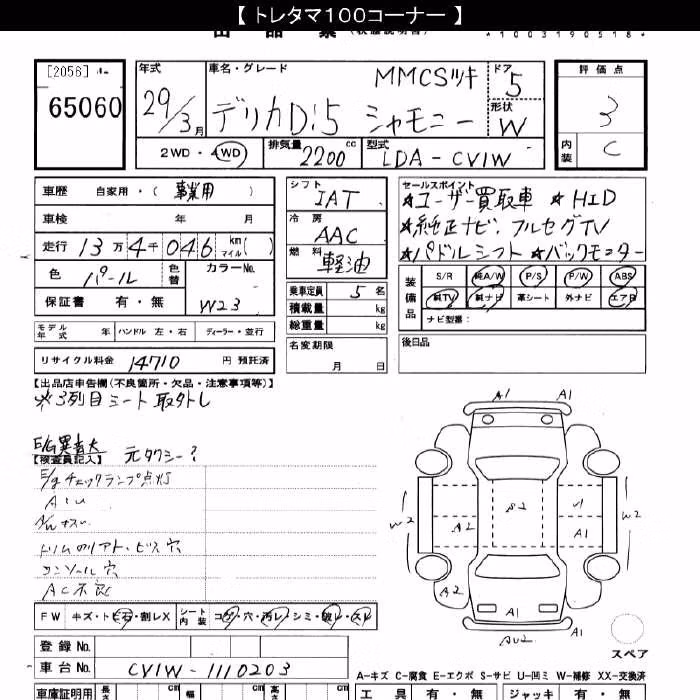 【 トレタマ100コーナー 】
[2056]
65060
年式 車名・グレード MMCSツキ ドア 5
29/3月 デリカD:5 シャモニー 形状 W
2WD・4WD 排気量 2200 cc 型式 LDA-CV1W
評価点
3
内装 C
車歴 自家用・( 事業用 )
車検 年 月
走行 13万4千046 km マイル( )
色 パール 色替 カラーNo. W23
保証書 有・無
モデル年式 年 ハンドル 左・右 ディーラー・並行
リサイクル料金 14710 円 預託済
シフト IAT
冷房 AAC
燃料 軽油
乗車定員 5 名
積載量 kg
総重量 kg
名変期限
月 日
セールスポイント
★ユーザー買取車 ★HID
★純正ナビ、フルセグTV
★パドルシフト ★バックモニター
装備品 S/R 純A/W P/S P/W ABS
純TV 純ナビ 革シート 外ナビ エアB
ナビ型番:
後日品
【出品店申告欄(不良箇所・欠品・注意事項等)】
※3列目シート取外し
E/G異音大
【検査員記入】 元タクシー?
E/gチェックランプ点灯
A・U
A/Wキズ
トリムのリアト・ビス穴
コンソール穴
AC不良
FW キズ・トビ石・割レX シート内装 コゲ・穴・汚レ・シミ・破レ・スレ
登録 No.
車台 No. CV1W-1110203
車庫証明用 長さ cm 幅 cm 高さ cm
A1 A1
W2 A2 S2 U1 A1 W2
A2 A1 A1
AU2
スペア
A-キズ C-腐食 E-エクボ S-サビ U-凹ミ W-補修 XX-交換済
工具 有・無 ジャッキ 有・無